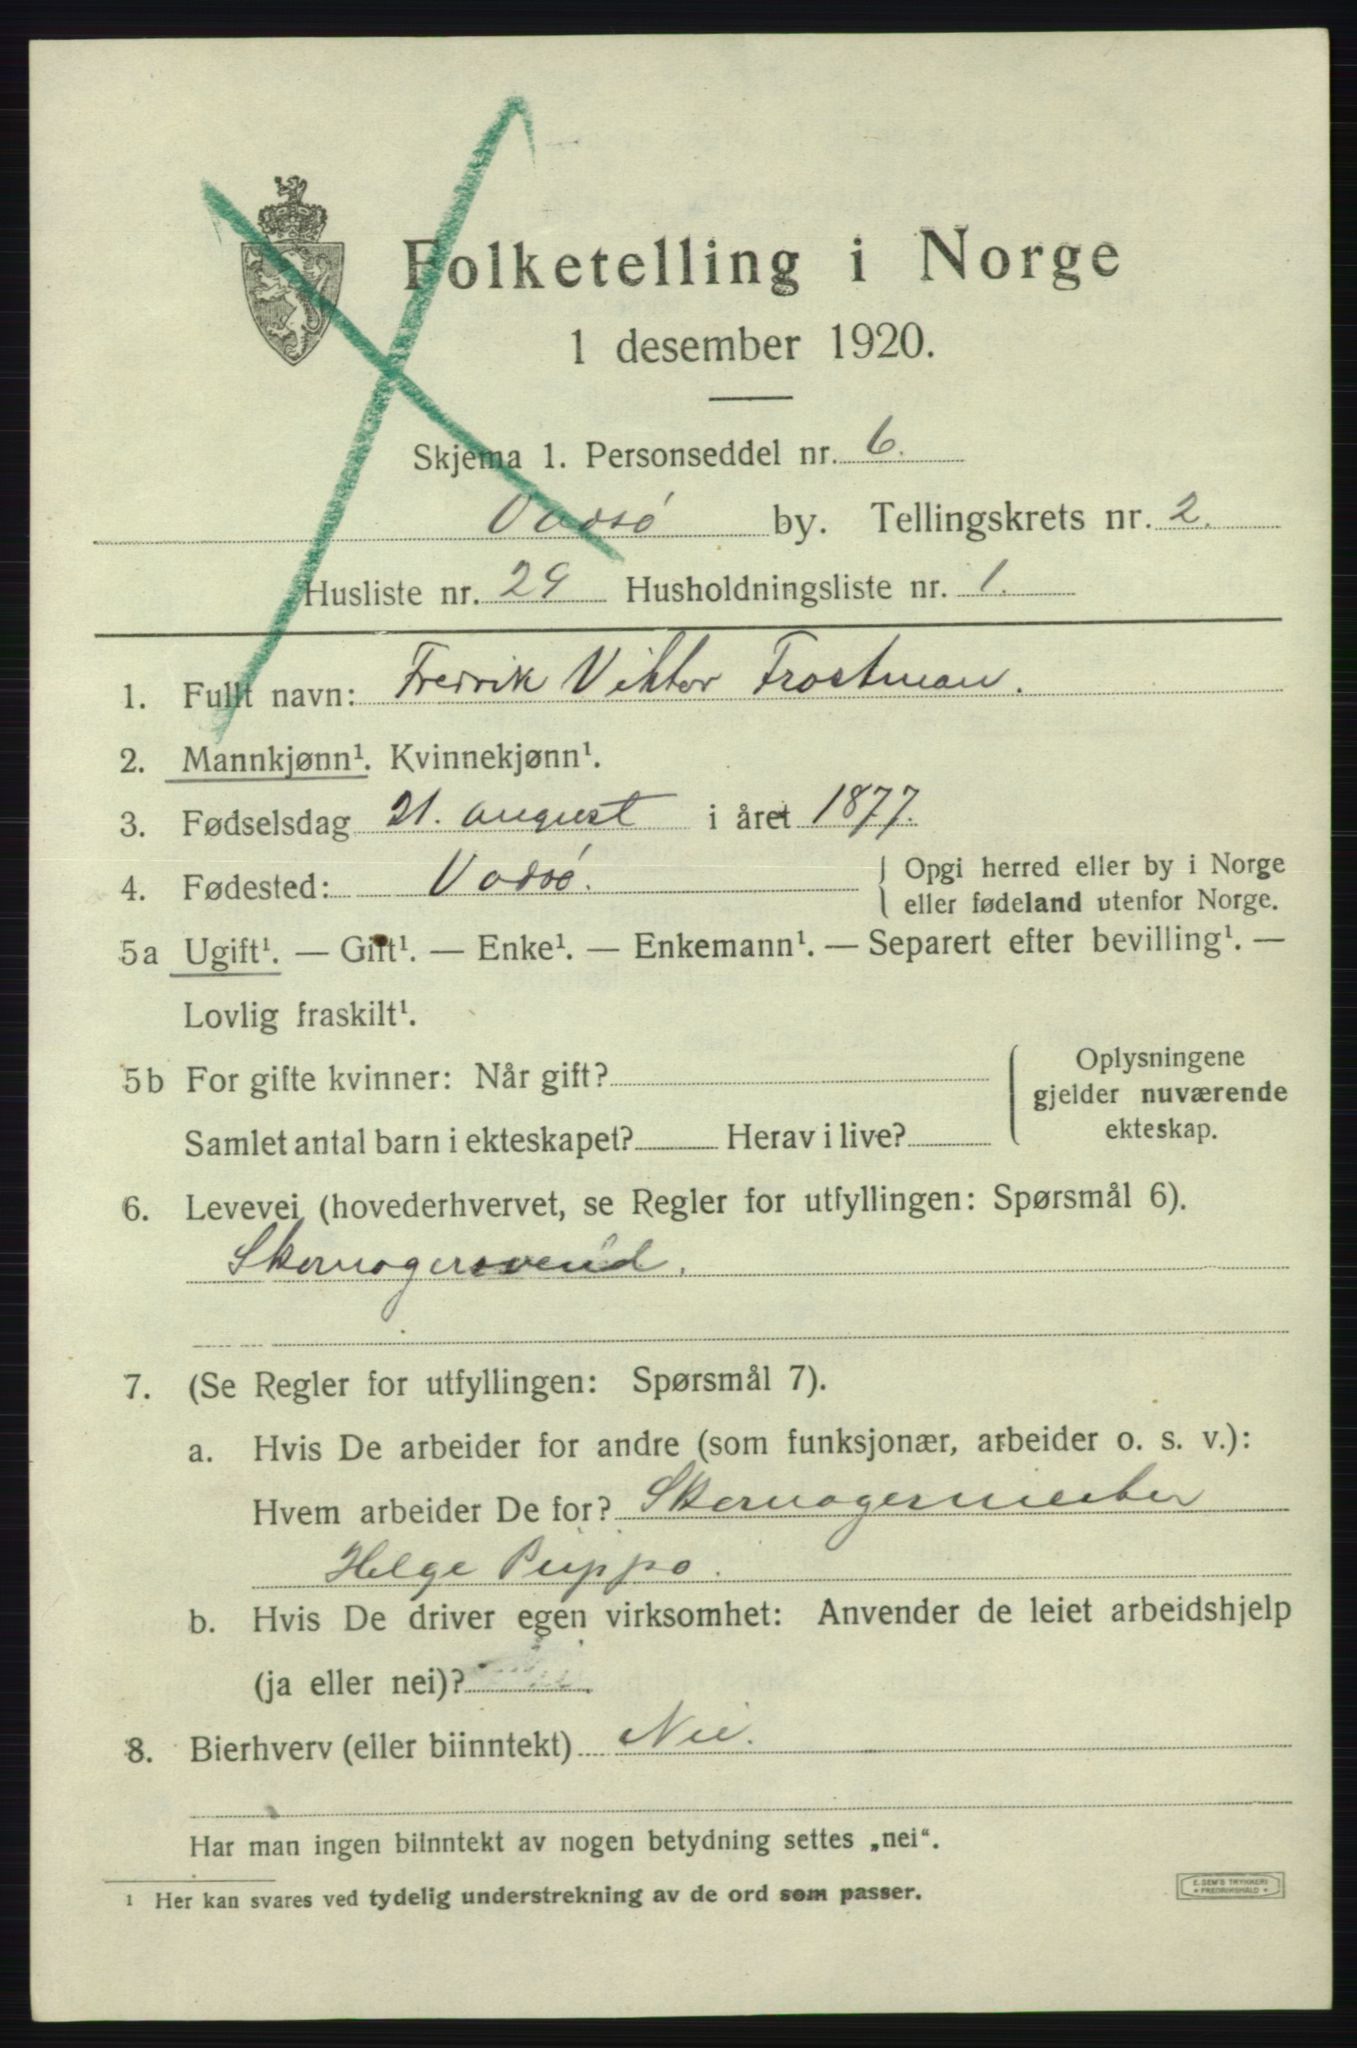 Folketelling i Norge
1 desember 1920.
Skjema 1. Personseddel nr. 6.
Vadsø by. Tellingskrets nr. 2.
Husliste nr. 29 Husholdningsliste nr. 1.
1. Fullt navn: Fredrik Viktor Frostman.
2. Mannkjønn¹. Kvinnekjønn¹.
3. Fødselsdag 21. august i året 1877.
4. Fødested: Vadsø. { Opgi herred eller by i Norge
eller fødeland utenfor Norge.
5a Ugift¹. — Gift¹. — Enke¹. — Enkemann¹. — Separert efter bevilling¹. —
Lovlig fraskilt¹.
5b For gifte kvinner: Når gift?
Samlet antal barn i ekteskapet? Herav i live?
Oplysningene
gjelder nuværende
ekteskap.
6. Levevei (hovederhvervet, se Regler for utfyllingen: Spørsmål 6).
Skomagersvend.
7. (Se Regler for utfyllingen: Spørsmål 7).
a. Hvis De arbeider for andre (som funksjonær, arbeider o. s. v.):
Hvem arbeider De for? Skomagermester
Helge Puppo.
b. Hvis De driver egen virksomhet: Anvender de leiet arbeidshjelp
(ja eller nei)?
8. Bierhverv (eller biinntekt) Nei.
Har man ingen biinntekt av nogen betydning settes „nei“.
¹ Her kan svares ved tydelig understrekning av de ord som passer.
E. SEM'S TRYKKERI
FREDRIKSHALD